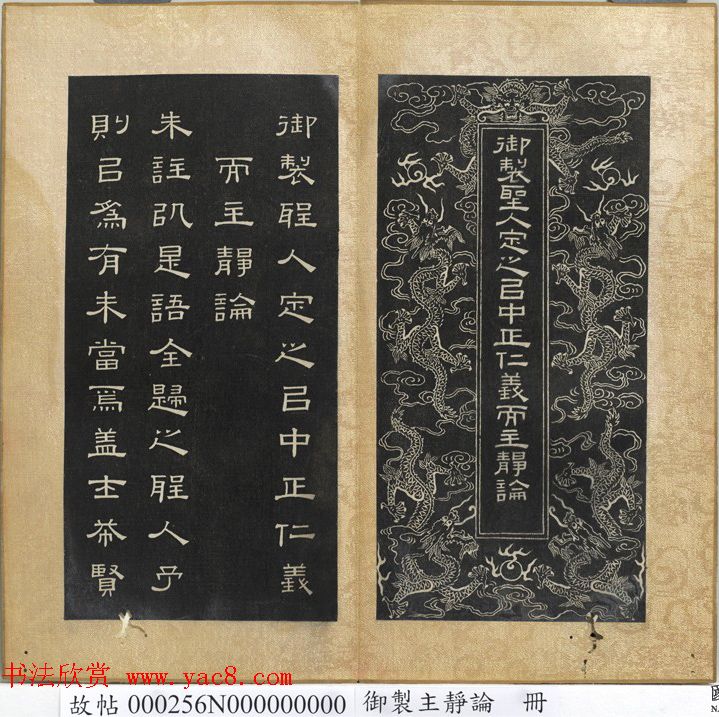 御製聖人定之以中正仁義而主靜論
御製聖人定之以中正仁義
而主靜論
朱註訊是語全歸之聖人予
則以為有未當焉蓋士希賢
书法欣赏 www.yac8.com
故帖 000256N000000000 御製主靜論 冊